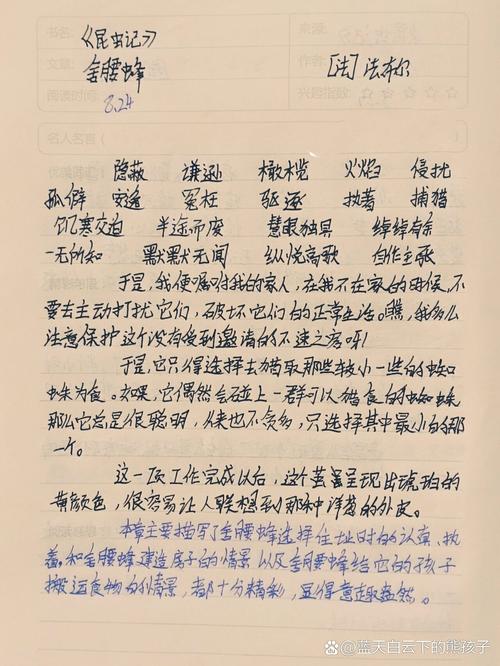 书名： 《昆虫记》 来源：
文章： 金腰蜂 作者： [法]法布尔
阅读时间： 8.24 兴趣指数：☆☆☆☆☆
名人名言（
隐蔽 谦逊 橄榄 火焰 侵扰
孤僻 安逸 冤枉 驱逐 执著 捕猎
饥寒交迫 半途而废 慧眼独具 绰绰有余
一无所知 默默无闻 纵悦高歌 自作主张
于是，我便嘱咐我的家人，在我不在家的时候，不
要去主动打扰它们，破坏它们的正常生活。瞧，我多么
注意保护这个没有受到邀请的不速之房呀！
于是，它只得选择去猎取那些较小一些的蜘
蛛为食。如果，它偶然会碰上一群可以猎食的蜘蛛
那么它总是很聪明，从来也不贪多，只选择其中最小的那
一个。
这一项工作完成以后，这个茧蛋呈现出琥珀的
黄颜色，很容易让人联想到那种洋葱的外皮。
本章主要描写了金腰蜂选择住址时的认真、执
着，和金腰蜂建造房子的情景以及金腰蜂给它的孩子
搬运食物的情景，都十分精彩，显得意趣盎然。
蓝天白云下的熊孩子